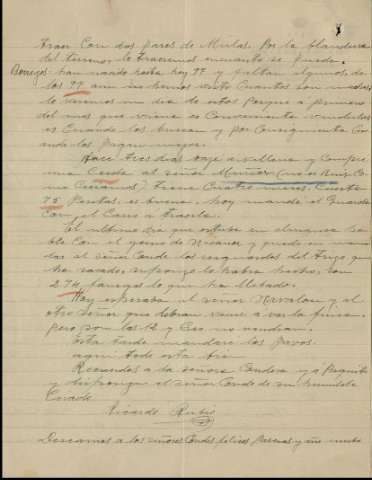 3
traer con dos pares de Mulas. Por la blandura
del terreno, lo traeremos en cuanto se pueda.
Borregos han nacido hasta hoy 99 y faltan algunos, de
los 99 aun no hemos visto cuantos son machos
lo veremos un dia de estos porque a primero
del mes que viene es conveniente venderlos
es cuando los buscan y por consiguiente cuando
los pagan mejor.
Hace tres dias baje a Villena y compre
una Cerda al señor Muñoz
tiene cuatro meses. Cuesta
75 Pesetas. es buena, hoy mandé al Guarda
con el Carro a traerla.
El ultimo dia que estuve en Almansa ha-
ble con el yerno de Nicanor y quedó en man-
dar al señor Conde los resguardos del trigo que
ha sacado, supongo lo habra hecho, son
274, fanegas lo que ha llevado.
Hoy esperaba al señor Navalon y al
otro señor que debian venir a ver la finca.
pero son las 12 y creo no vendran.
Esta tarde mandaré los pavos.
aqui todo esta bien
Recuerdos a la señora Condesa y a Paquito
y disponga el señor Conde de su humilde
Criado
Ricardo Rubio
Deseamos a los señores Condes felices Pascuas y año nuevo